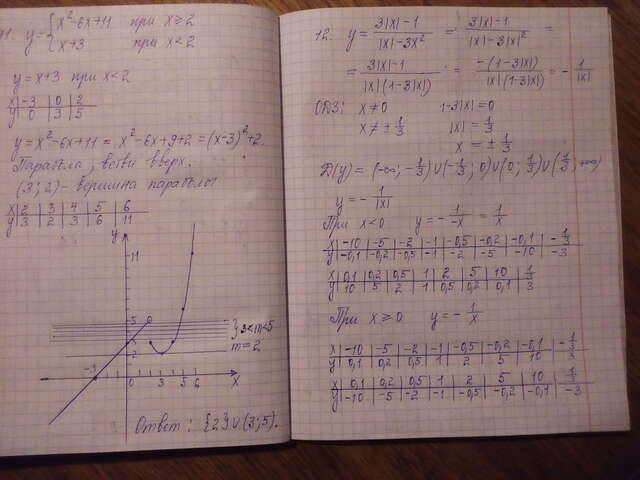 1. y = { x²-6x+11 при x ≥ 2
x+3 при x < 2
y = x+3 при x < 2
x | -3 | 0 | 2
y | 0 | 3 | 5
y = x²-6x+11 = x²-6x+9+2 = (x-3)²+2.
Парабола, ветви вверх.
(3; 2) - вершина параболы
x | 2 | 3 | 4 | 5 | 6
y | 3 | 2 | 3 | 6 | 11
y
11
5
3
2
} 3<m<5
m=2
-3 0 2 3 4 5 6 x
Ответ: {2}∪(3; 5).
12. y = (3|x|-1)/(|x|-3x²) = (3|x|-1)/(|x|-3|x|²) =
= (3|x|-1)/(|x|(1-3|x|)) = (-(1-3|x|))/(|x|(1-3|x|)) = -1/|x|
ОДЗ: x ≠ 0 1-3|x| = 0
x ≠ ± 1/3 |x| = 1/3
x = ± 1/3
D(y) = (-∞; -1/3)∪(-1/3; 0)∪(0; 1/3)∪(1/3; +∞)
y = -1/|x|
При x < 0 y = -1/-x = 1/x
x | -10 | -5 | -2 | -1 | -0,5 | -0,2 | -0,1 | -1/3
y | -0,1 | -0,2 | -0,5 | -1 | -2 | -5 | -10 | -3
x | 0,1 | 0,2 | 0,5 | 1 | 2 | 5 | 10 | 1/3
y | 10 | 5 | 2 | 1 | 0,5 | 0,2 | 0,1 | 3
При x ≥ 0 y = -1/x
x | -10 | -5 | -2 | -1 | -0,5 | -0,2 | -0,1 | -1/3
y | 0,1 | 0,2 | 0,5 | 1 | 2 | 5 | 10 | 3
x | 0,1 | 0,2 | 0,5 | 1 | 2 | 5 | 10 | 1/3
y | -10 | -5 | -2 | -1 | -0,5 | -0,2 | -0,1 | -3